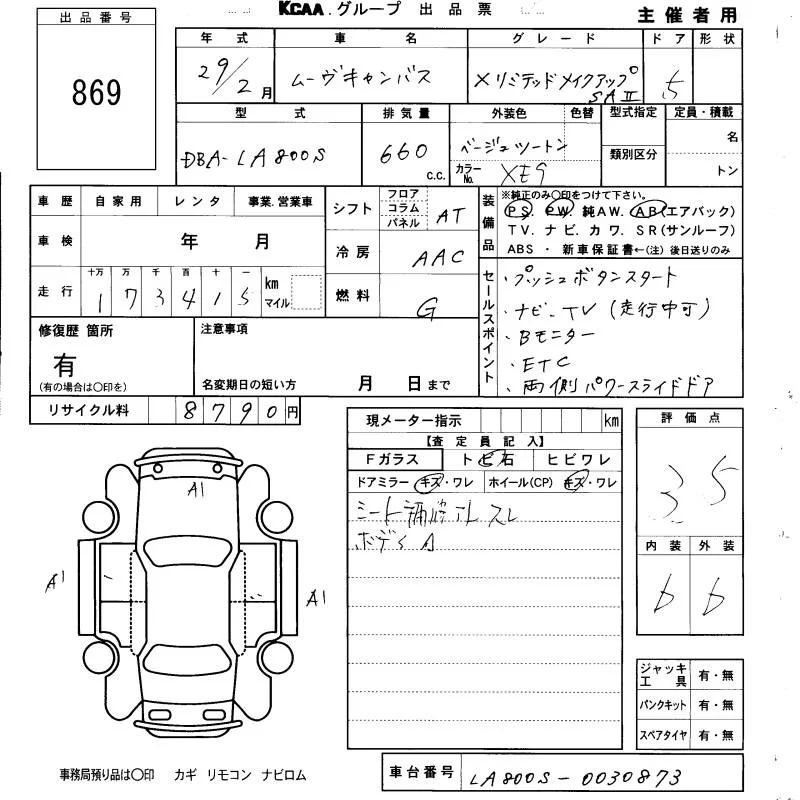 KCAA.グループ 出品票
主催者用
出品番号
869
年式 車名 グレード ドア 形状
29/2月 ムーヴキャンバス Xリミテッドメイクアップ SAⅡ 5
型式 排気量 外装色 色替 型式指定 定員・積載
DBA-LA800S 660 c.c. ベージュツートン 類別区分 名
カラーNo. XE9 トン
車歴 自家用 レンタ 事業.営業車
車検 年 月
走行 十万 万 千 百 十 一 km マイル
1 7 3 4 1 5
シフト フロア コラム パネル AT
冷房 AAC
燃料 G
装備品
※純正のみ○印をつけて下さい。
PS. PW. 純AW. AB(エアバック)
TV. ナビ. カワ. SR(サンルーフ)
ABS・新車保証書←(注)後日送りのみ
セールスポイント
・プッシュボタンスタート
・ナビ、TV(走行中可)
・Bモニター
・ETC
・両側パワースライドドア
修復歴 箇所
有
(有の場合は○印を)
注意事項
名変期日の短い方 月 日まで
リサイクル料 8790円
現メーター指示 km
【査定員記入】
Fガラス トビ石 ヒビワレ
ドアミラー キズ・ワレ ホイール(CP) キズ・ワレ
シート スレ
ボディA
評価点
3.5
内装 外装
b b
A1
A1
A1
ジャッキ工具 有・無
パンクキット 有・無
スペアタイヤ 有・無
事務局預り品は○印 カギ リモコン ナビロム
車台番号 LA800S-0030873